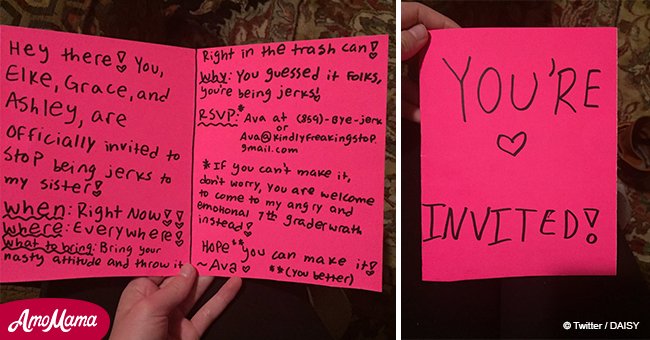 Hey there! You,
Elke, Grace, and
Ashley, are
officially invited to
stop being jerks to
my sister!
When: Right Now!!
Where: Everywhere!
What to bring: Bring your
nasty attitude and throw it
Right in the trash can!
Why: You guessed it folks,
you're being jerks!
RSVP:* Ava at (859)-Bye-jerk
or
Ava@Kindlyfreakingstop.
gmail.com
*If you can't make it,
don't worry, you are welcome
to come to my angry and
emotional 7th grader wrath
instead!
Hope** you can make it!
~Ava♡ **(You better)
AmoMama
YOU'RE
♡
INVITED!
© Twitter / DAISY